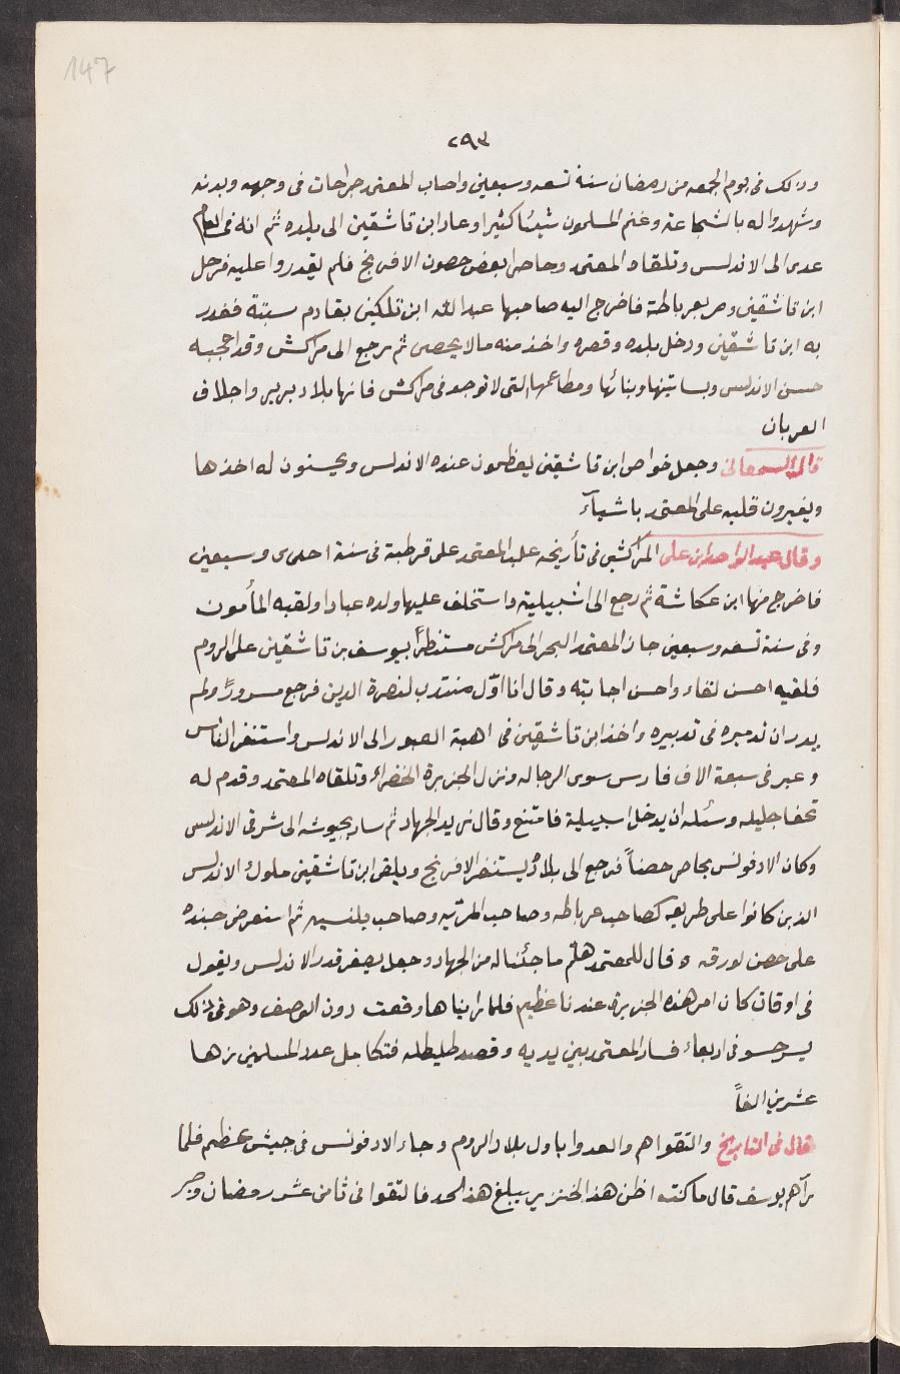 147
٢٩٣
وذلك فى يوم الجمعه من رمضان سنة تسعه وسبعين واصاب المعتمد جراحات فى وجهه وبدنه
وشهدوا له بالشجاعة وغنم المسلمون شيئا كثيرا وعاد ابن تاشقين الى بلده ثم انه فى العام
عدى الى الاندلس وتلقاه المعتمد وحاصرا بعض حصون الافرنج فلم يقدروا عليه فرحل
ابن تاشقين ومر بغرناطة فاخرج اليه صاحبها عبد الله ابن تلكين بقادم سبتة فغدر
به ابن تاشقين ودخل بلده وقصره واخذ منه مالا يحصى ثم رجع الى مراكش وقد اعجبه
حسن الاندلس وبساتينها وبنائها ومطاعمها التى لا توجد فى مراكش فانها بلاد بربر واجلاف
العربان
قال السمعانى وجعل خواص ابن تاشقين يعظمون عنده الاندلس ويحسنون له اخذها
ويغيرون قلبه على المعتمد باشيآء
وقال عبد الواحد ابن على المراكشى فى تأريخه غلب المعتمد على قرطبة فى سنة احدى وسبعين
فاخرج منها ابن عكاشة ثم رجع الى اشبيلية واستخلف عليها ولده عبادا ولقبه المأمون
وفى سنة تسعه وسبعين جاز المعتمد البحر الى مراكش مستنظراً بيوسف بن تاشقين على الروم
فلقيه احسن لقاء واحسن اجابته وقال انا اوّل منتدب لنصرة الدين فرجع مسروراً ولم
يدر ان تدميره فى تدبيره واخذ ابن تاشقين فى اهبة العبور الى الاندلس واستنفر الناس
وعبر فى سبعة الاف فارس سوى الرجاله ونزل الجزيرة الخضراء وتلقاه المعتمد وقدم له
تحفا جليله وسئله ان يدخل اسبيلية فامتنع وقال نريد الجهاد ثم سار بجيوشه الى شرقى الاندلس
وكان الادفونس يحاصر حصناً فرجع الى بلاده يستنفر الافرنج ويلقى ابن تاشقين ملوك الاندلس
الذين كانوا على طريقه كصاحب غرناطه وصاحب المريّه وصاحب بلنسيه ثم استعرض جنده
على حصن لورقه وقال للمعتمد هلم ما جئنا له من الجهاد وجعل يصغر قدر الاندلس ويقول
فى اوقات كان امر هذه الجزيرة عندنا عظيم فلما راينا ها وقعت دون الوصف وهو فى ذلك
يسر حسوا فى ارتغاء فسار المعتمد بين يديه وقصد طليطله فتكامل عدد المسلمين زها
عشرين الفاً
قال فى التاريخ والتقوا هم والعدوا باول بلاد الروم وجاء الادفونس فى جيش عظيم فلما
رآهم يوسف قال ما كنت اظن هذا الخنزير يبلغ هذا لحد فالتقوا فى ثامن عشر رمضان وصبر